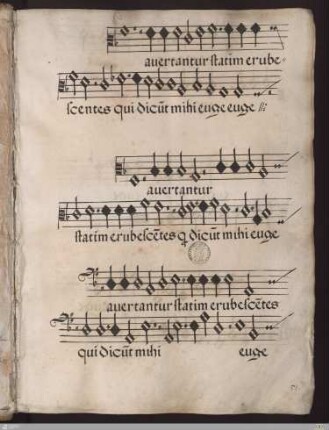 auertantur statim erube-
scentes qui dicūt mihi euge euge
auertantur
statim erubescētes q dicūt mihi euge
auertantur statim erubescētes
qui dicūt mihi euge